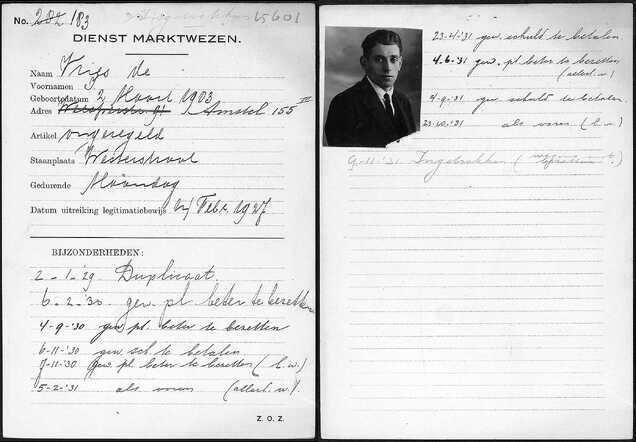 No. 282 183 15601
DIENST MARKTWEZEN.
Naam Vries de
Voornamen
Geboortedatum 2 Maart 1903
Adres Amstel 155 III
Artikel ongeregeld
Staanplaats Westerstraat
Gedurende Maandag
Datum uitreiking legitimatiebewijs Febr. 1927
BIJZONDERHEDEN:
2-1-'29 Duplicaat.
6-2-'30 gew. pl. beter te bezetten
4-9-'30 gew. pl. beter te bezetten
6-11-'30 gew. sch. te betalen
9-11-'30 gew. pl. beter te bezetten (l.w.)
5-2-'31 als voren (allerl. w.)
Z. O. Z.
23-4-'31 gew. schuld te betalen
4-6-'31 gew. pl. beter te bezetten
(allerl. w.)
4-9-'31 gew. schuld te betalen
23-10-'31 als voren (l.w.)
9-11-'31 Ingetrokken